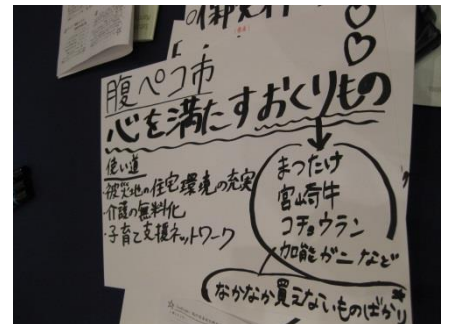 腹ペコ市
心を満たすおくりもの
使い道
・被災地の住宅環境の充実
・介護の無料化
・子育て支援ネットワーク
まつたけ
宮崎牛
コチョウラン
加能ガニなど
なかなか買えないものばかり